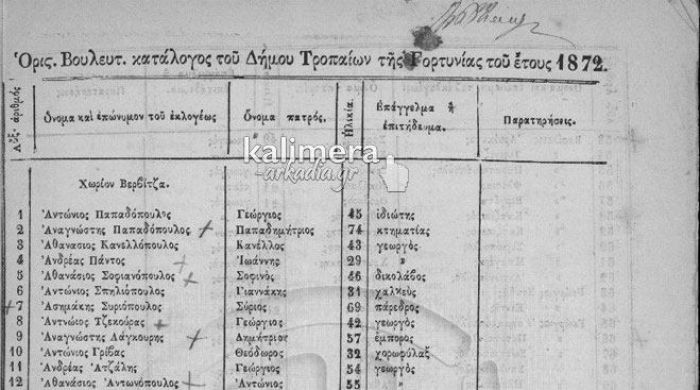 Ὁρις. Βουλευτ. κατάλογος τοῦ Δήμου Τροπαίων τῆς Γορτυνίας τοῦ ἔτους 1872.
Αὔξ. ἀριθμός Ὄνομα καὶ ἐπώνυμον τοῦ ἐκλογέως Ὄνομα πατρός. Ἡλικία. Ἐπάγγελμα ἢ ἐπιτήδευμα. Παρατηρήσεις.
kalimera
-arkadia.gr
Χωρίον Βερβίτζα.
1 Ἀντώνιος Παπαδόπουλος Γεώργιος 45 ἰδιώτης
2 Ἀναγνώστης Παπαδόπουλος Παπαδημήτριος 74 κτηματίας
3 Ἀθανασιος Κανελλόπουλος Κανέλλος 43 γεωργὸς
4 Ἀνδρέας Πάντος Ἰωάννης 29 »
5 Ἀθανάσιος Σοφιανόπουλος Σοφινὸς 46 δικολάβος
6 Ἀντώνιος Σπηλιόπουλος Γιαννάκης 31 χαλκεὺς
7 Ἀσημάκης Συριόπουλος Σύριος 69 πάρεδρος
8 Ἀντώνιος Τζεκούρας Γεώργιος 42 γεωργὸς
9 Ἀναγνώστης Λάγκουρης Δημήτριος 57 ἔμπορος
10 Ἀντώνιος Γρίβας Θεόδωρος 32 χωροφύλαξ
11 Ἀνδρέας Ἀτζάλης Γεώργιος 54 γεωργὸς
12 Ἀθανάσιος Ἀντωνόπουλος Ἀντώνιος 55 »